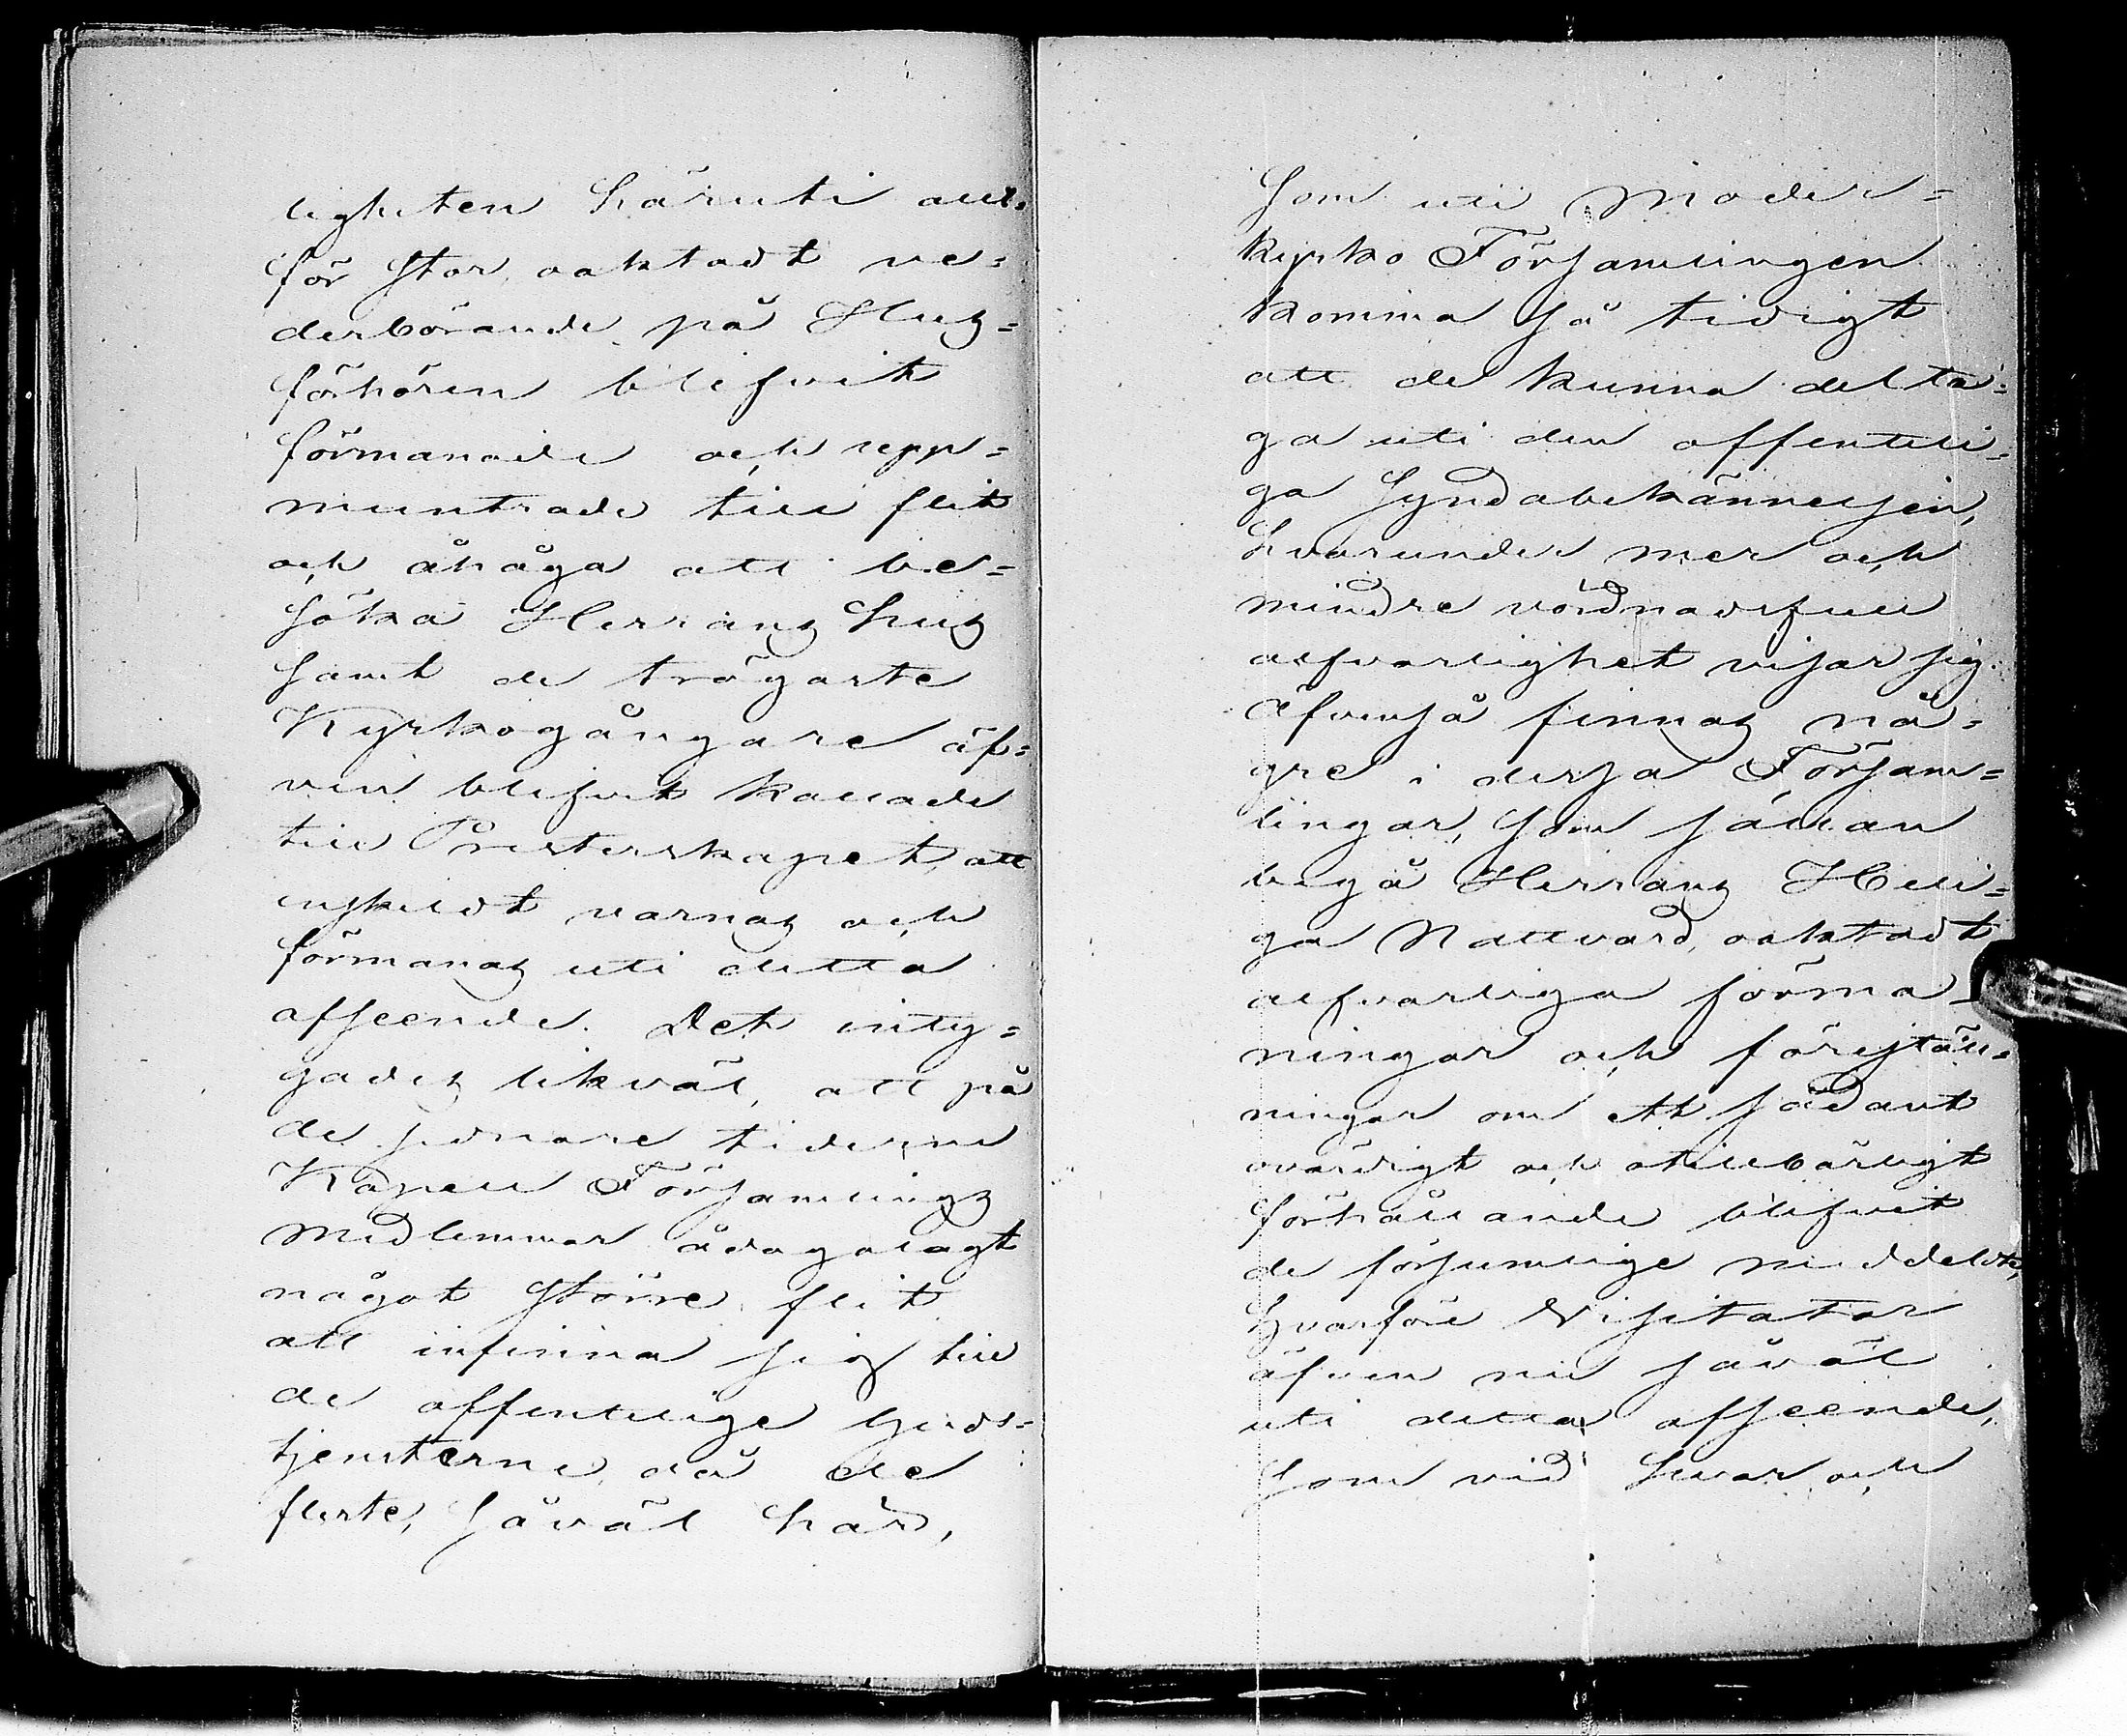 ligheten häruti all,
för stor, oaktadt ve=
derbörande på Hus=
förhören blifvit
förmanade och upp=
muntrade till flit
och åhåga att be=
söka Herrans hus
samt de trögaste
Kyrkogångare äf=
ven blifvit kallade
till Presterskapet, att
enskildt varnas och
förmanas uti detta
afseende. Det inty=
gades likväl, att på
de sednare tiderne
Kapell Församlings
medlemmar ådagalagt
något större flit
att infinna sig till
de offentelige Guds=
tjensterne, då de
fleste, såväl här,
som uti Moder=
kyrko Församlingen
komma så tidigt
att de kunna delta=
ga uti den offenteli=
ga Syndabekännelsen,
hvarunder mer och
mindre vördnadsfull
alfvarlighet visar sig.
Äfvenså finnas nå=
gre i dessa Försam=
lingar, som sällan
begå Herrans Heli=
ga Nattvard, oaktadt
alfvarliga förma=
ningar och föreställ=
ningar om ett sådant
ovärdigt och otillbörligt
förhållande blifvit
de försumlige meddeldte,
hvarföre Visitator
äfven nu såväl
uti detta afseende,
som vid hvar och